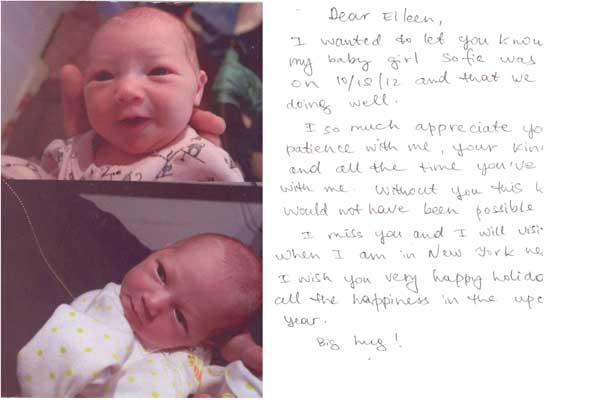 Dear Eileen,
I wanted to let you know
my baby girl Sofie was
on 10/18/12 and that we
doing well.
I so much appreciate yo
patience with me, your kin
and all the time you've
with me. Without you this
would not have been possible
I miss you and I will visi
when I am in New York ne
I wish you very happy holida
all the happiness in the upc
year.
Big hug!